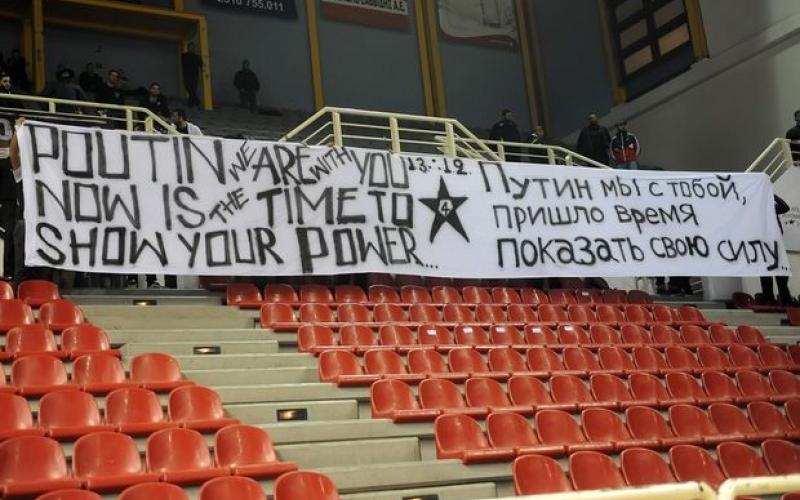 2310 755.011
POUTIN WE ARE WITH YOU
NOW IS THE TIME TO
SHOW YOUR POWER...
13.-.12.
4
ПУТИН МЫ С ТОБОЙ,
ПРИШЛО ВРЕМЯ
ПОКАЗАТЬ СВОЮ СИЛУ...